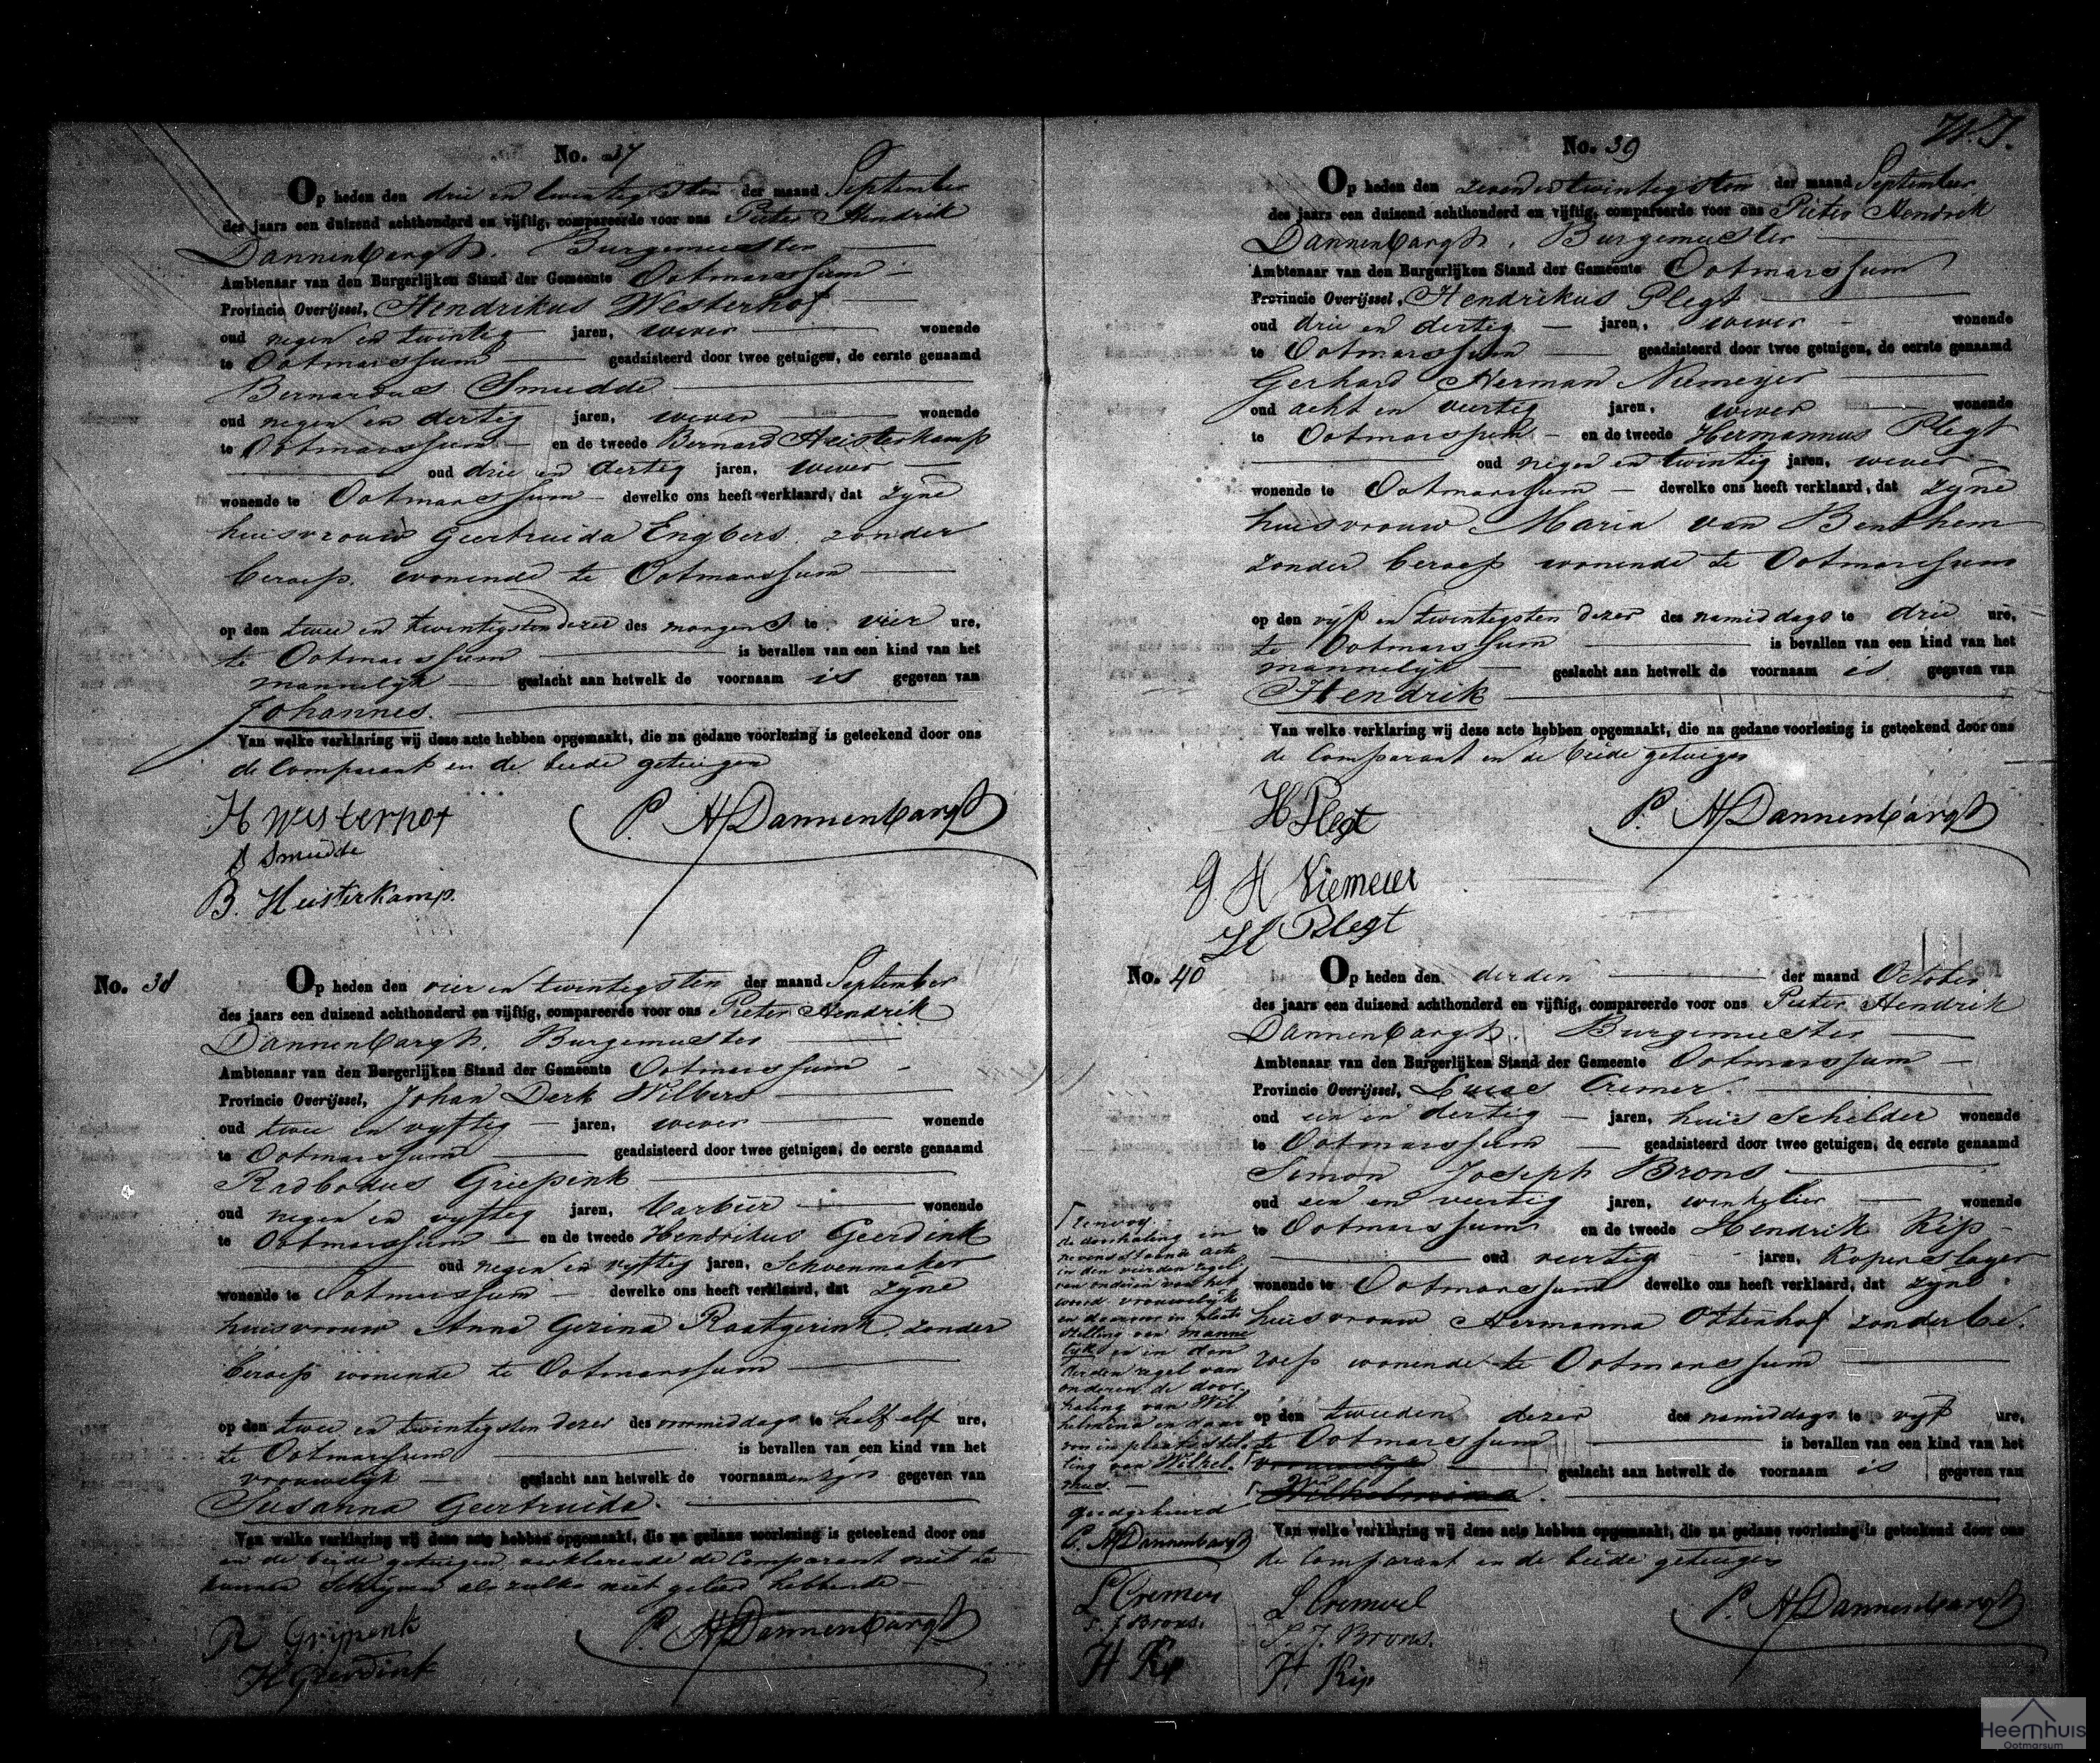 No. 37
Op heden den drie en twintigsten der maand September
des jaars een duizend achthonderd en vijftig, compareerde voor ons Pieter Hendrik
Dannenbargh, Burgemeester
Ambtenaar van den Burgerlijken Stand der Gemeente Ootmarssum
Provincie Overijssel, Hendrikus Westerhof
oud negen en twintig jaren, wever wonende
te Ootmarssum geadsisteerd door twee getuigen, de eerste genaamd
Bernardus Smudde
oud negen en dertig jaren, wever wonende
te Ootmarssum en de tweede Bernard Heisterkamp
oud drie en dertig jaren, wever
wonende te Ootmarssum dewelke ons heeft verklaard, dat zyne
huisvrouw Geertruida Engbers, zonder
beroep, wonende te Ootmarssum
op den twee en twintigsten dezer des morgens te vier ure,
te Ootmarssum is bevallen van een kind van het
mannelyk geslacht aan hetwelk de voornaam is gegeven van
Johannes.
Van welke verklaring wij deze acte hebben opgemaakt, die na gedane voorlezing is geteekend door ons
de Comparant en de beide getuigen
H Westerhof
P. H Dannenbargh
B Smudde
B. Heisterkamp.
No. 38
Op heden den vier en twintigsten der maand September
des jaars een duizend achthonderd en vijftig, compareerde voor ons Pieter Hendrik
Dannenbargh, Burgemeester
Ambtenaar van den Burgerlijken Stand der Gemeente Ootmarssum
Provincie Overijssel, Johan Derk Wilbers
oud twee en vyftig jaren, wever wonende
te Ootmarssum geadsisteerd door twee getuigen, de eerste genaamd
Radbodus Griepink
oud negen en vyftig jaren, barbier wonende
te Ootmarssum en de tweede Hendrikus Geerdink
oud negen en vyftig jaren, Schoenmaker
wonende te Ootmarssum dewelke ons heeft verklaard, dat zyne
huisvrouw Anna Gerina Raatgerink, zonder
beroep wonende te Ootmarssum
op den twee en twintigsten dezer des voormiddags te half elf ure,
te Ootmarssum is bevallen van een kind van het
vrouwelyk geslacht aan hetwelk de voornaamen zyn gegeven van
Susanna Geertruida.
Van welke verklaring wij deze acte hebben opgemaakt, die na gedane voorlezing is geteekend door ons
en de beide getuigen, verklarende de Comparant niet te
kunnen Schryven als zulks niet geleerd hebbende
R Gripenk
P. H Dannenbargh
H Geerdink
No. 39
Op heden den zeven en twintigsten der maand September
des jaars een duizend achthonderd en vijftig, compareerde voor ons Pieter Hendrik
Dannenbargh, Burgemeester
Ambtenaar van den Burgerlijken Stand der Gemeente Ootmarssum
Provincie Overijssel, Hendrikus Plegt
oud drie en dertig jaren, wever wonende
te Ootmarssum geadsisteerd door twee getuigen, de eerste genaamd
Gerhard Herman Niemeyer
oud acht en veertig jaren, wever wonende
te Ootmarssum en de tweede Hermannus Plegt
oud negen en twintig jaren, wever
wonende te Ootmarssum dewelke ons heeft verklaard, dat zyne
huisvrouw Maria van Benthem
zonder beroep wonende te Ootmarssum
op den vyf en twintigsten dezer des namiddags te drie ure,
te Ootmarssum is bevallen van een kind van het
mannelyk geslacht aan hetwelk de voornaam is gegeven van
Hendrik
Van welke verklaring wij deze acte hebben opgemaakt, die na gedane voorlezing is geteekend door ons
de Comparant en de beide getuigen
H Plegt
P. H Dannenbargh
G. H Niemeier
H Plegt
No. 40
Op heden den derden der maand October
des jaars een duizend achthonderd en vijftig, compareerde voor ons Pieter Hendrik
Dannenbargh, Burgemeester
Ambtenaar van den Burgerlijken Stand der Gemeente Ootmarssum
Provincie Overijssel, Lucas Cremer
oud een en dertig jaren, huis Schilder wonende
te Ootmarssum geadsisteerd door twee getuigen, de eerste genaamd
Simon Joseph Brons
oud een en veertig jaren, winkelier wonende
te Ootmarssum en de tweede Hendrik Kip
oud veertig jaren, Koperslager
wonende te Ootmarssum dewelke ons heeft verklaard, dat zyne
huisvrouw Hermanna Ottenhof zonder be-
roep wonende te Ootmarssum
op den tweeden dezer des namiddags te vyf ure,
te Ootmarssum is bevallen van een kind van het
vrouwelyk geslacht aan hetwelk de voornaam is gegeven van
Wilhelmina
Van welke verklaring wij deze acte hebben opgemaakt, die na gedane voorlezing is geteekend door ons
de Comparant en de beide getuigen
L Cremer
P. H Dannenbargh
S. J. Brons.
H Kip
renvoy
de doorhaling in
nevenstaande acte
in den vierden regel
van onderen van het
woord vrouwelyk
en daarvoor in plaats
stelling van manne
lyk en in den
derden regel van
onderen de door-
haling van Wil
helmina en daar
voor in plaatsstel-
ling van Wilhel-
mus.
goedgekeurd
P. H Dannenbargh
L Cremer
S. J Brons.
H Kip
Heemhuis
Ootmarsum